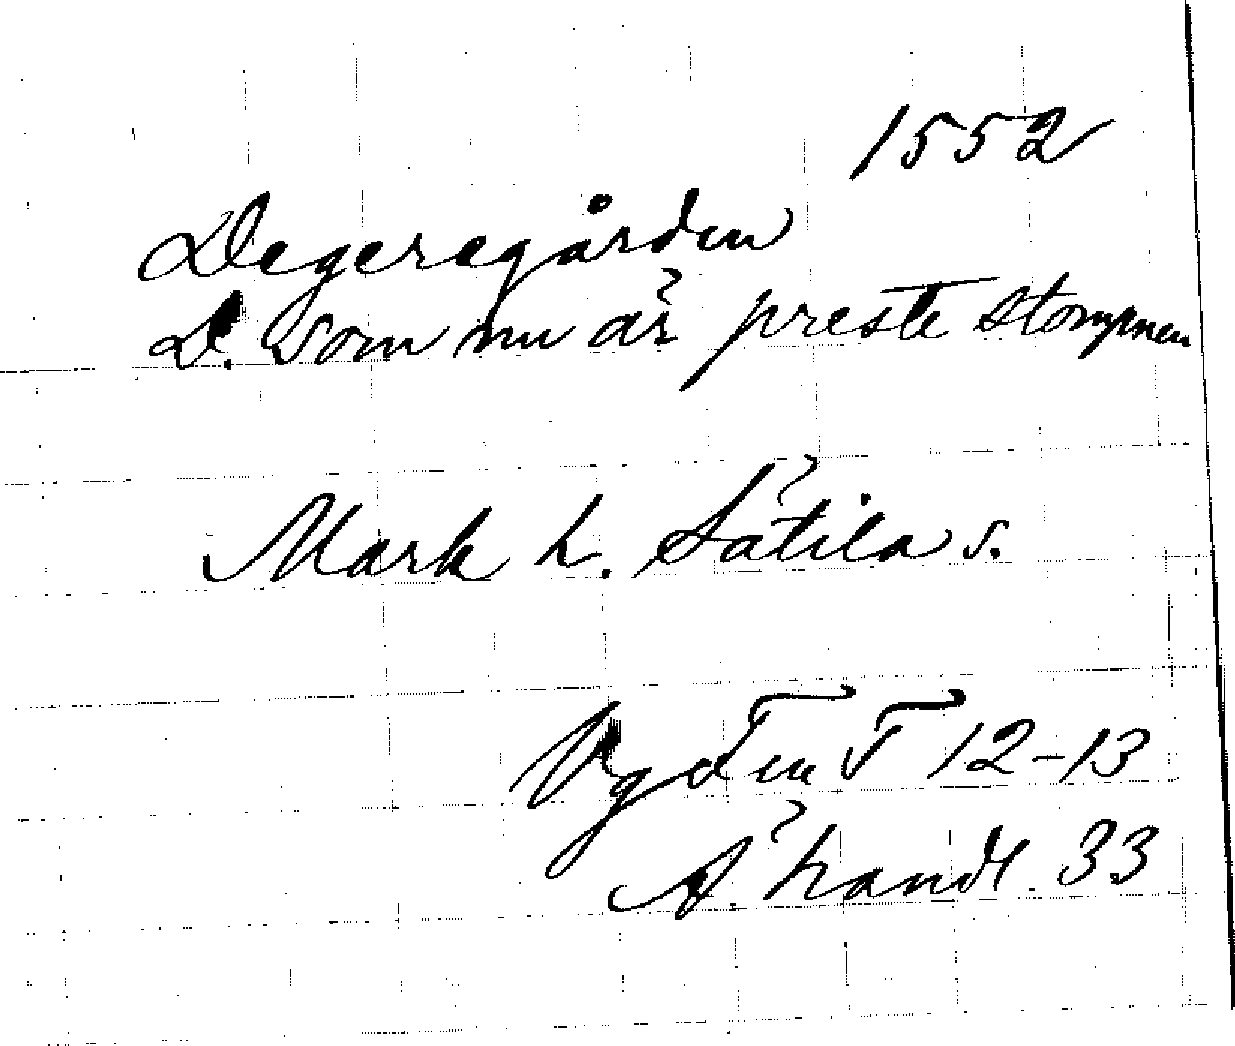 1552
Degeregården
D. som nu är preste stompnen
Mark h. Sätila s.
Vg Fen F 12-13
Ä. handl. 33